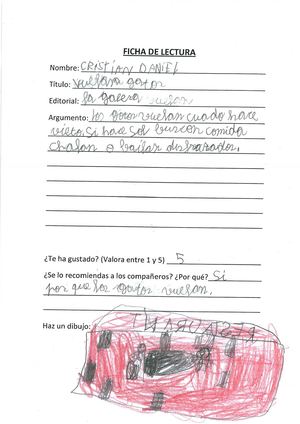 FICHA DE LECTURA
Nombre: CRISTIAN DANIEL
Título: vuelan gatos
Editorial: la galera
Argumento: los gatos vuelan cuado hace
vieto. Si hace sol buscan comida
o bailan disfrazados.
¿Te ha gustado? (Valora entre 1 y 5) 5
¿Se lo recomiendas a los compañeros? ¿Por qué? Si
por que los gatos vuelan.
Haz un dibujo: